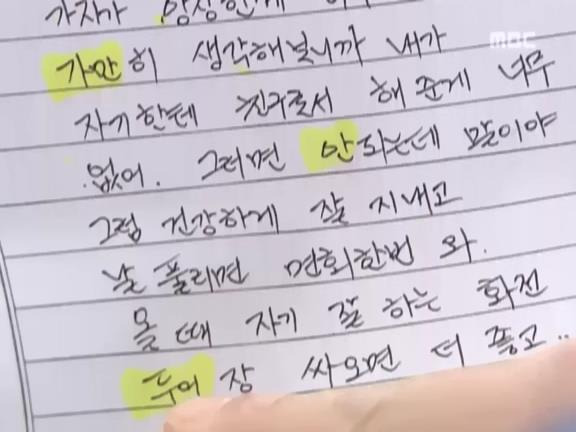 가만히 생각해보니까 내가
자기한테 친구로서 해 준게 너무
없어. 그러면 안되는데 말이야
그럼 건강하게 잘 지내고
날 풀리면 면회한번 와.
올 때 자기 잘 하는 화전
두어 장 싸오면 더 좋고..
MBC